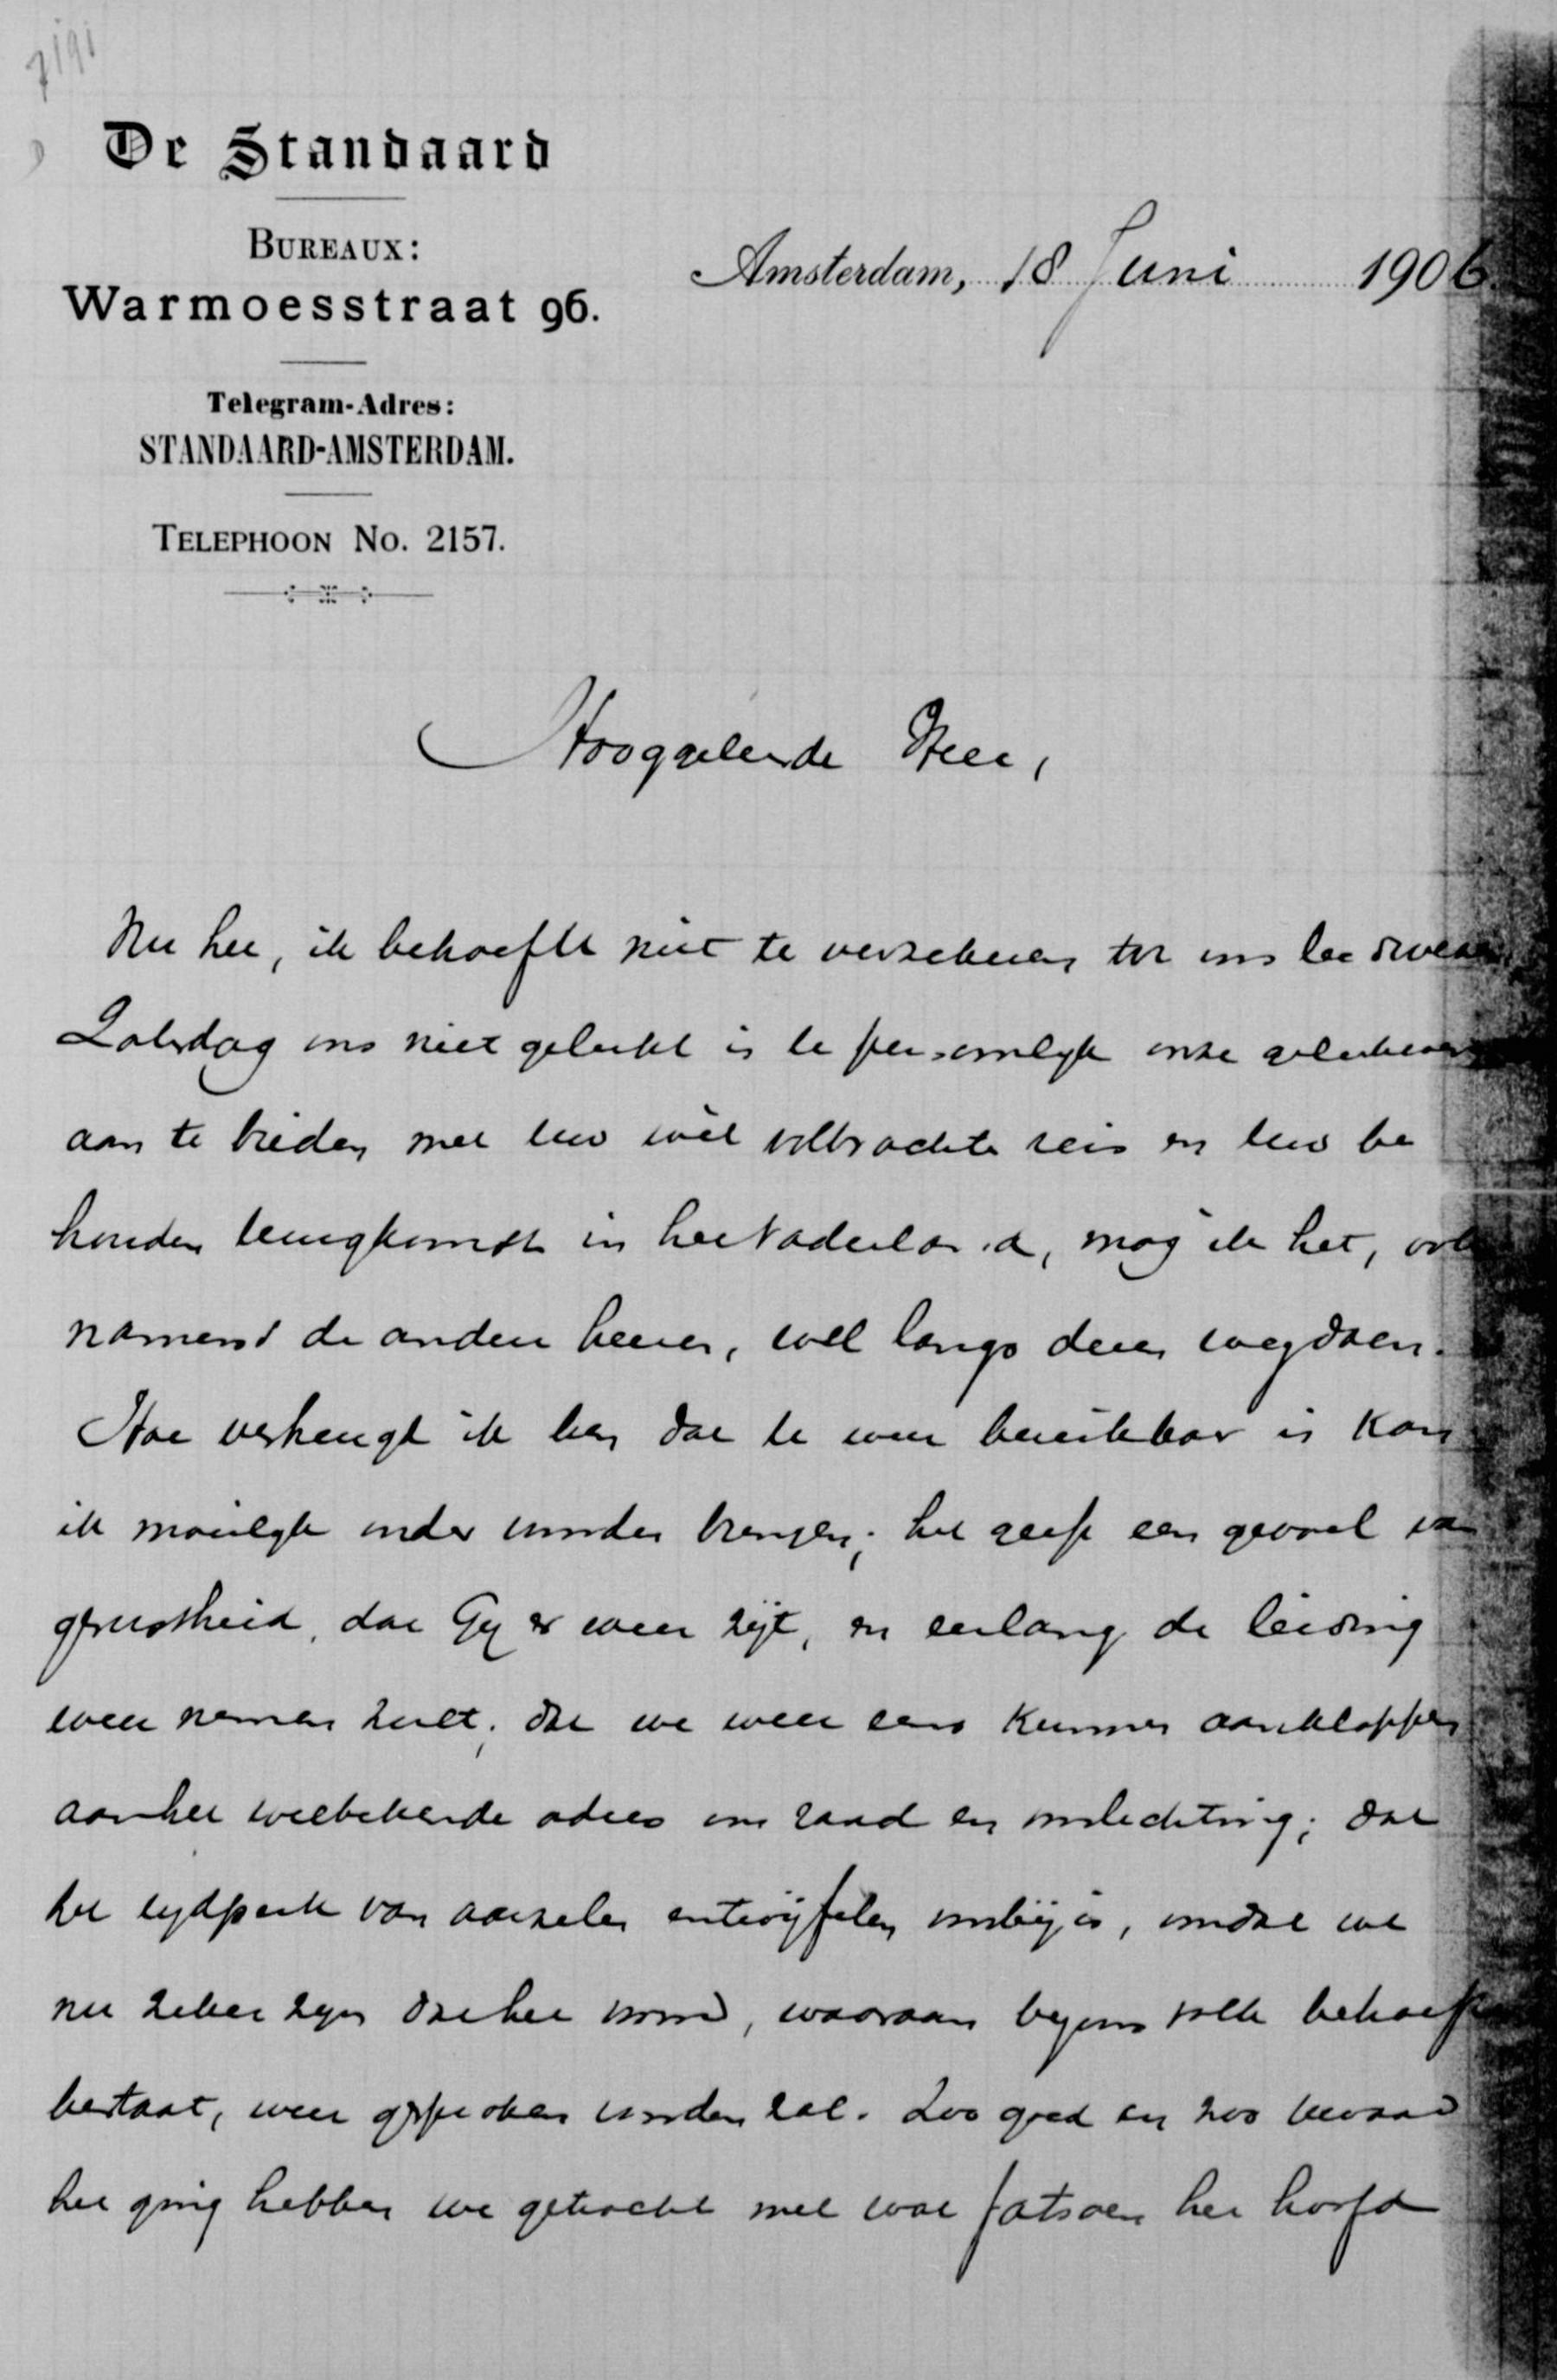 7191
De Standaard
BUREAUX:
Warmoesstraat 96.
Telegram-Adres:
STANDAARD-AMSTERDAM.
TELEPHOON No. 2157.
Amsterdam, 18 Juni 1906.
Hooggeleerde Heer,
Nu het, ik behoefte niet te verzekeren tot ons leedwezen
Zaterdag ons niet gelukt is U persoonlijk onze gelukwensch
aan te bieden met Uw wèl volbrachte reis en Uw be
houden terugkomst in het Vaderland, mag ik het, ook
namens de andere heeren, wel langs dezen weg doen.
Hoe verheugd ik ben dat U weer bereikbaar is kan
ik moeilijk onder woorden brengen; het geeft een gevoel van
gerustheid, dat Gij er weer zijt, en eerlang de leiding
weer nemen zult; dat we weer eens kunnen aankloppen
aan het welbekende adres om raad en inlichting; dat
het tijdperk van aarzelen en twijfelen voorbij is, omdat we
nu zeker zijn dat het woord, waaraan bij ons volk behoefte
bestaat, weer gesproken worden zal. Zoo goed en zoo kwaad
het ging hebben we getracht met wat fatsoen het hoofd